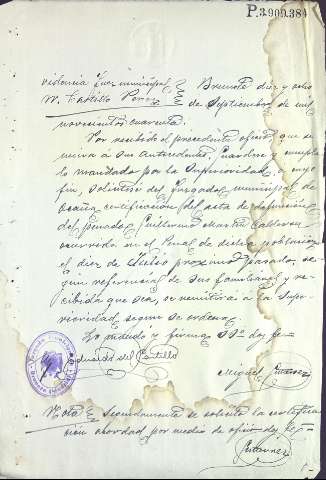 P.3.909.384
Providencia Juez municipal Brunete diez y ocho
Sr. Castillo Perez de Septiembre de mil
novecientos cuarenta.
Por recibido el precedente oficio que se
una a sus antecedentes. Guardese y cumpla
lo mandado por la Superioridad, cuyo
fin, solicitese del Juzgado municipal de
Ocaña certificación del acta de defunción
del penado Guillermo Martin Calderon
ocurrida en el Penal de dicha poblacion
el diez de Julio proximo pasado, se-
gun referencias de sus familiares y re-
cibida que sea, se remitira a la Supe-
rioridad, segun se ordena.
Lo mandó y firma Sª doy fe
Eduardo del Castillo
Miguel
Nota Seguidamente se solicita la certifica-
ción acordada por medio de oficio doy fe